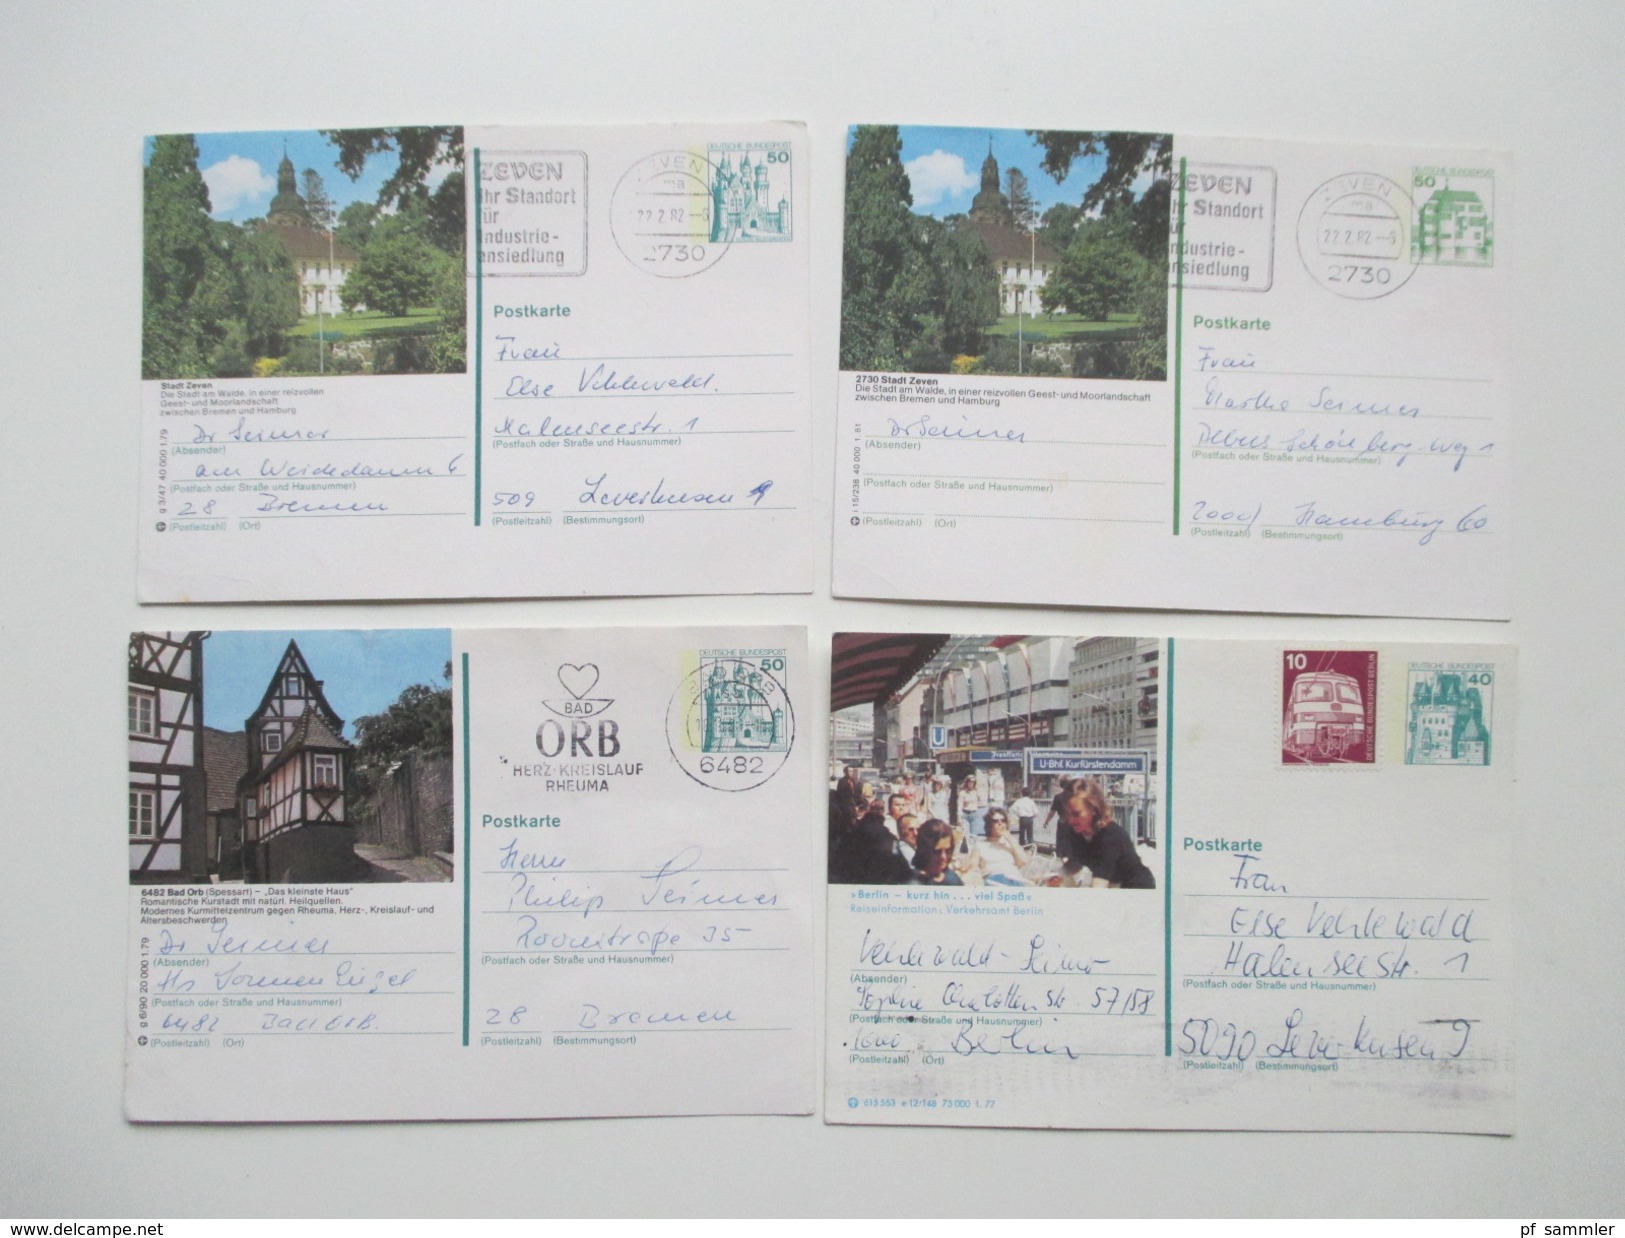 DEUTSCHE BUNDESPOST
50
ZEVEN
Ihr Standort
für
Industrie-
ansiedlung
ZEVEN
22.2.82
2730
Postkarte
Frau
Else
Halenseestr. 1
(Postfach oder Straße und Hausnummer)
509 Leverkusen 9
(Postleitzahl) (Bestimmungsort)
Stadt Zeven
Die Stadt am Walde, in einer reizvollen
Geest- und Moorlandschaft
zwischen Bremen und Hamburg
Dr Seimer
(Absender)
am Weidedamm 6
(Postfach oder Straße und Hausnummer)
28 Bremen
(Postleitzahl) (Ort)
g 3/47 40 000 1.79
DEUTSCHE BUNDESPOST
50
ZEVEN
Ihr Standort
für
Industrie-
ansiedlung
ZEVEN
22.2.82
2730
Postkarte
Frau
Seimer
Weg 1
(Postfach oder Straße und Hausnummer)
2000 Hamburg 60
(Postleitzahl) (Bestimmungsort)
2730 Stadt Zeven
Die Stadt am Walde, in einer reizvollen Geest- und Moorlandschaft
zwischen Bremen und Hamburg
Dr Seimer
(Absender)
(Postfach oder Straße und Hausnummer)
(Postleitzahl) (Ort)
i 15/238 40 000 1.81
DEUTSCHE BUNDESPOST
50
BAD
ORB
HERZ-KREISLAUF
RHEUMA
BAD ORB
6482
Postkarte
Herrn
Philip Seimer
Roonstraße 35
(Postfach oder Straße und Hausnummer)
28 Bremen
(Postleitzahl) (Bestimmungsort)
6482 Bad Orb (Spessart) – „Das kleinste Haus"
Romantische Kurstadt mit natürl. Heilquellen.
Modernes Kurmittelzentrum gegen Rheuma, Herz-, Kreislauf- und
Altersbeschwerden
Dr Seimer
(Absender)
(Postfach oder Straße und Hausnummer)
6482 Bad Orb.
(Postleitzahl) (Ort)
g 6/90 20 000 1.79
10
DEUTSCHE BUNDESPOST BERLIN
DEUTSCHE BUNDESPOST
40
U
U-Bhf Kurfürstendamm
Postkarte
Frau
Else Vehlewald
Halenseestr. 1
(Postfach oder Straße und Hausnummer)
5090 Leverkusen 9
(Postleitzahl) (Bestimmungsort)
»Berlin – kurz hin . . . viel Spaß«
Reiseinformation: Verkehrsamt Berlin
Vehlewald - Seimer
(Absender)
Sophie Charlotten Str. 57/58
(Postfach oder Straße und Hausnummer)
1000 Berlin
(Postleitzahl) (Ort)
615 563 e 12/148 75 000 1. 77
www.delcampe.net
pf_sammler